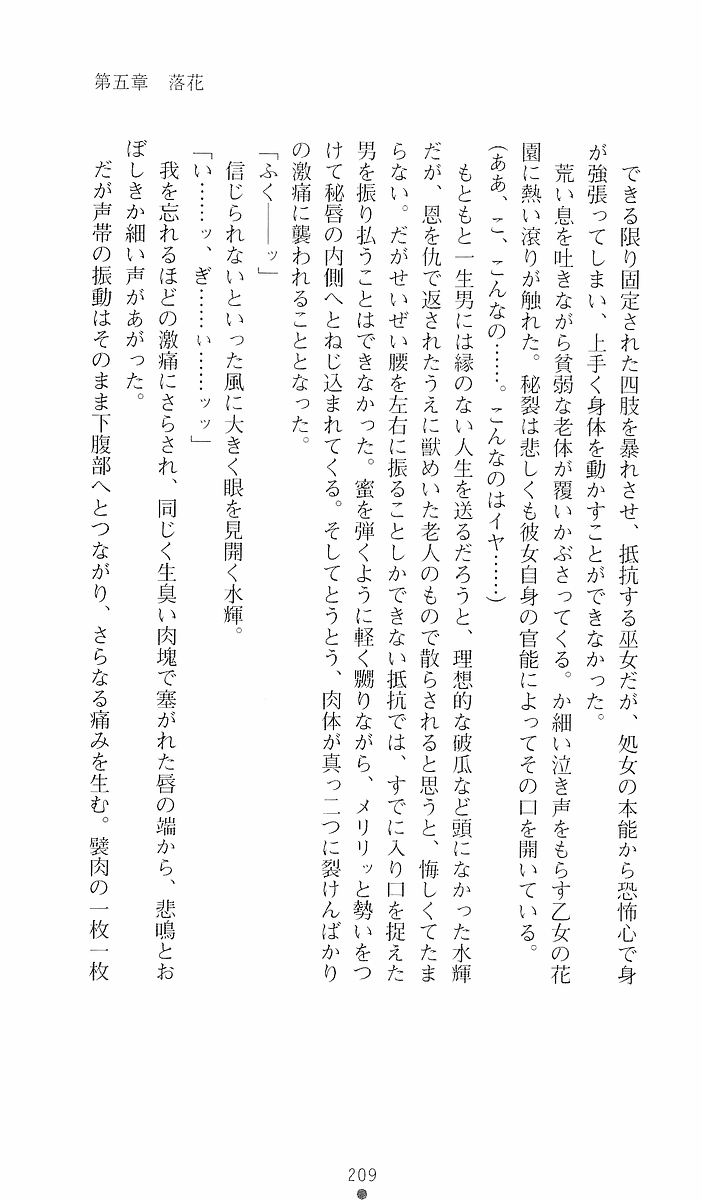 第五章　落花
　できる限り固定された四肢を暴れさせ、抵抗する巫女だが、処女の本能から恐怖心で身
が強張ってしまい、上手く身体を動かすことができなかった。
　荒い息を吐きながら貧弱な老体が覆いかぶさってくる。か細い泣き声をもらす乙女の花
園に熱い滾りが触れた。秘裂は悲しくも彼女自身の官能によってその口を開いている。
（ああ、こ、こんなの……。こんなのはイヤ……）
　もともと一生男には縁のない人生を送るだろうと、理想的な破瓜など頭になかった水輝
だが、恩を仇で返されたうえに獣めいた老人のもので散らされると思うと、悔しくてたま
らない。だがせいぜい腰を左右に振ることしかできない抵抗では、すでに入り口を捉えた
男を振り払うことはできなかった。蜜を弾くように軽く嬲りながら、メリリッと勢いをつ
けて秘唇の内側へとねじ込まれてくる。そしてとうとう、肉体が真っ二つに裂けんばかり
の激痛に襲われることとなった。
「ふく――ッ」
　信じられないといった風に大きく眼を見開く水輝。
「い……ッ、ぎ……ぃ……ッッ」
　我を忘れるほどの激痛にさらされ、同じく生臭い肉塊で塞がれた唇の端から、悲鳴とお
ぼしきか細い声があがった。
　だが声帯の振動はそのまま下腹部へとつながり、さらなる痛みを生む。襞肉の一枚一枚
209